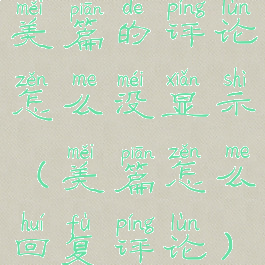 měi piān de píng lùn
美篇的评论
zěn me méi xiǎn shì
怎么没显示
měi piān zěn me
（美篇怎么
huí fù píng lùn
回复评论）